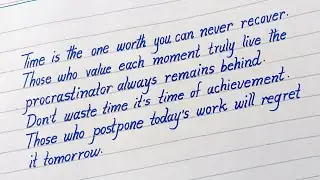 Time is the one worth you can never recover.
Those who value each moment truly live the
procrastinator always remains behind.
Don't waste time it's time of achievement.
Those who postpone today's work will regret
it tomorrow.